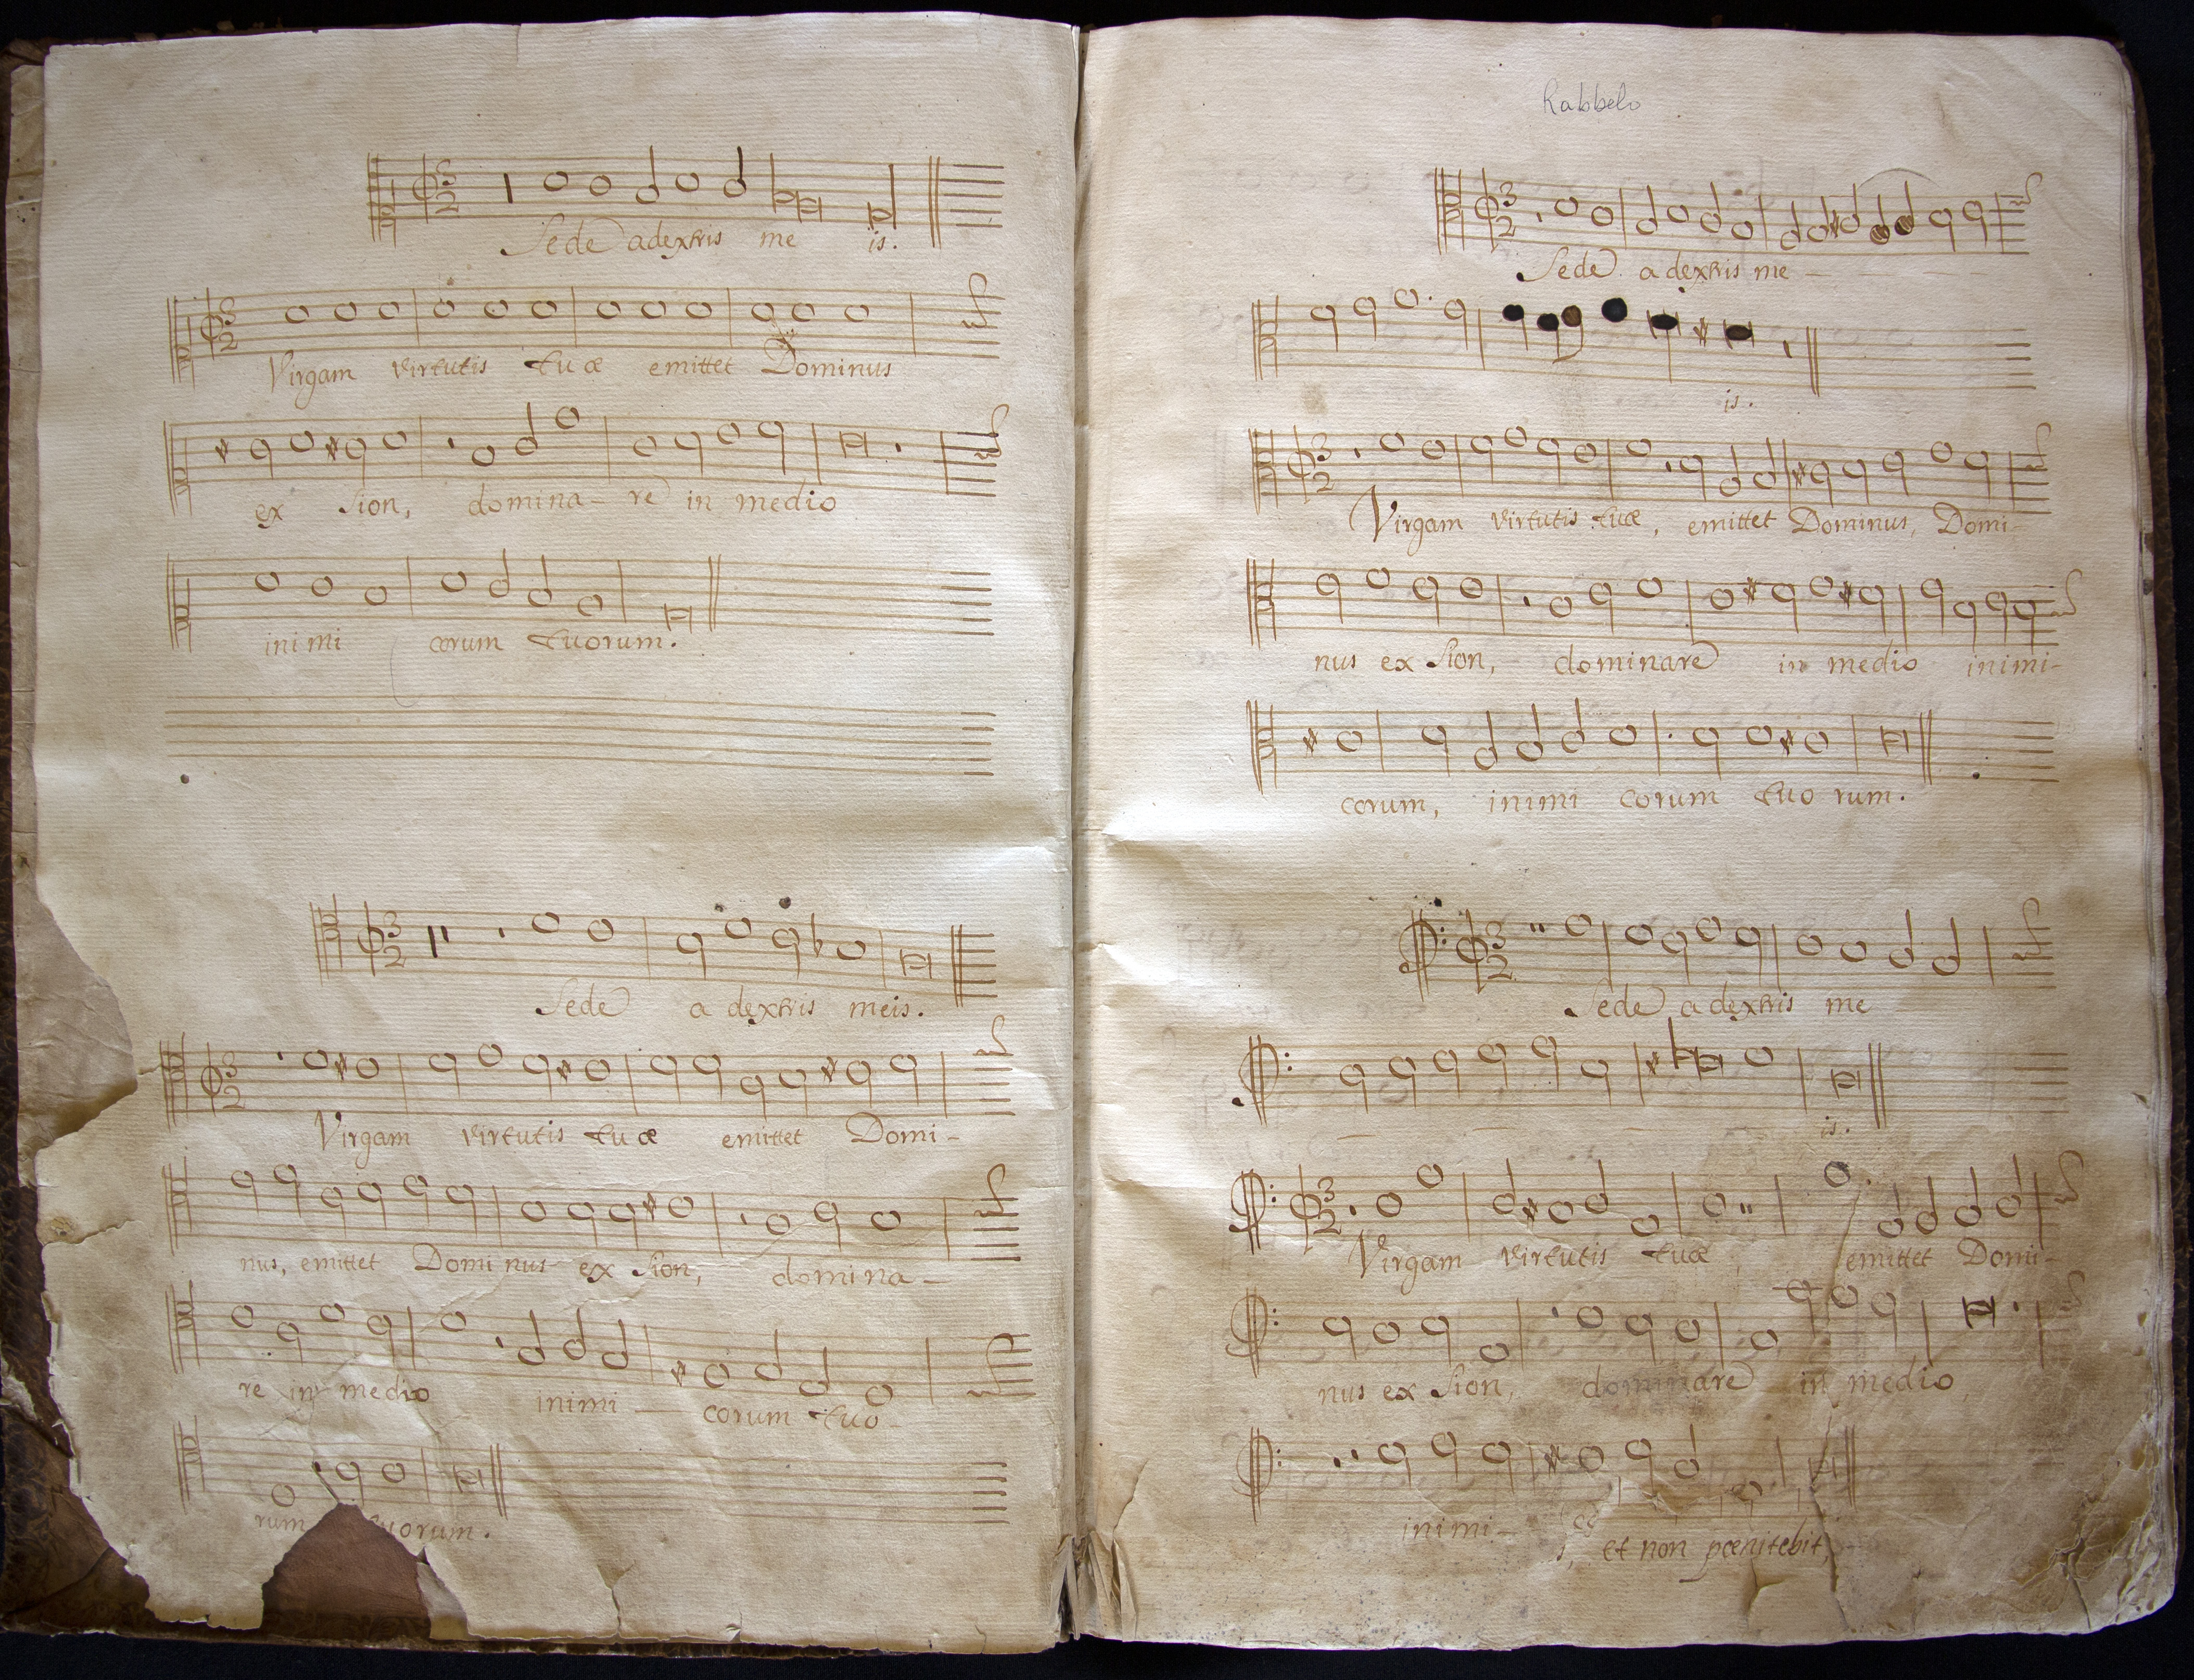 Sede a dextris me is.
Virgam virtutis tuæ emittet Dominus
ex Sion, domina- re in medio
inimi corum tuorum.
Sede a dextris meis.
Virgam virtutis tuæ emittet Domi-
nus, emittet Dominus ex Sion, domina-
re in medio inimi - corum tuo-
rum uorum.
Rabbelo
Sede a dextris me -
is.
Virgam virtutis tuæ, emittet Dominus, Domi-
nus ex Sion, dominare in medio inimi-
corum, inimi corum tuo rum.
Sede a dextris me
is.
Virgam virtutis tuæ emittet Domi-
nus ex Sion, dominare in medio,
inimi-
et non pœnitebit,